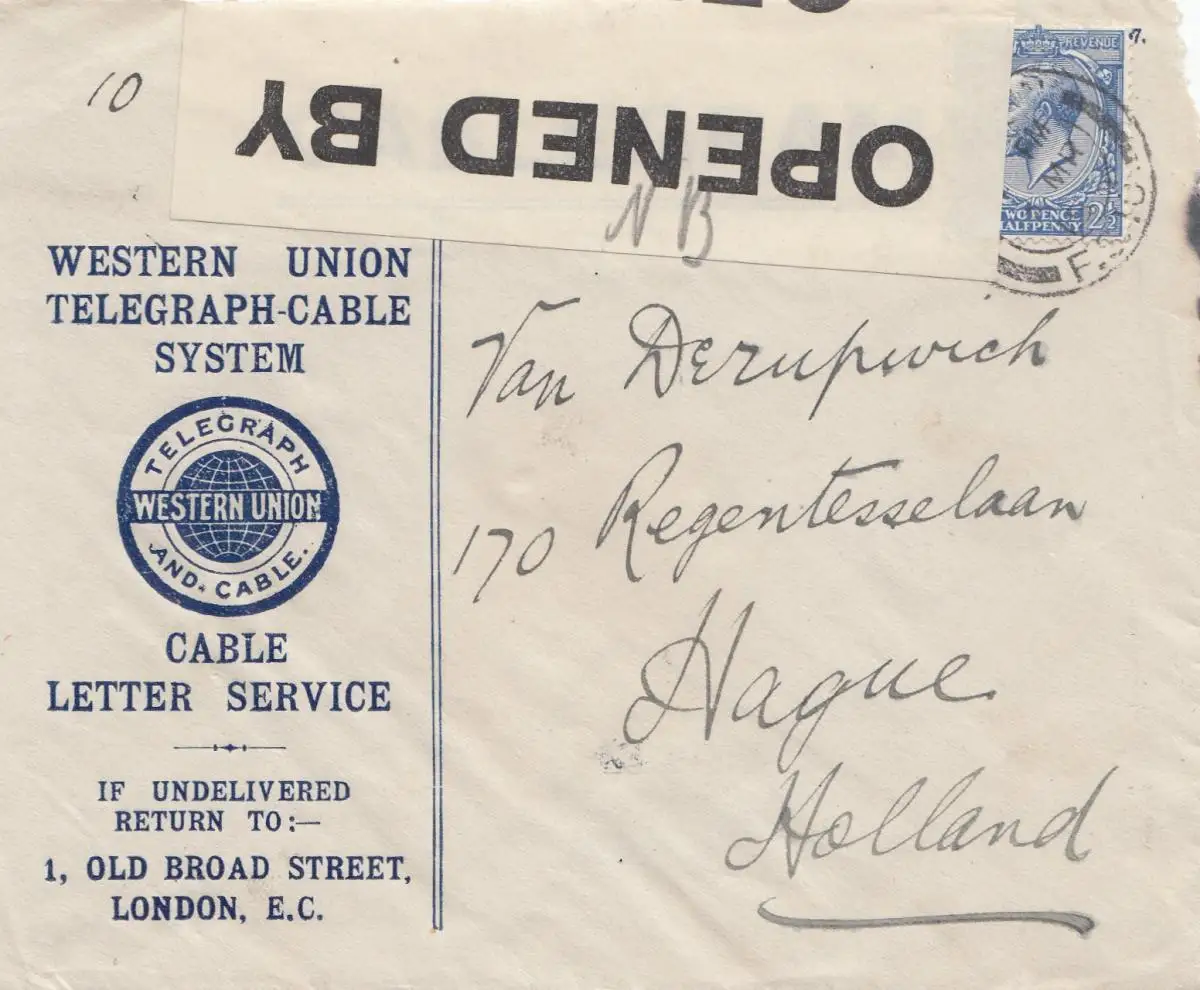 10
OPENED BY
N B
REVENUE
TWO PENCE
HALFPENNY 2½
WESTERN UNION
TELEGRAPH-CABLE
SYSTEM
TELEGRAPH
WESTERN UNION
AND. CABLE.
CABLE
LETTER SERVICE
IF UNDELIVERED
RETURN TO:—
1, OLD BROAD STREET,
LONDON, E.C.
Van Derupwich
170 Regentesselaan
Hague
Holland